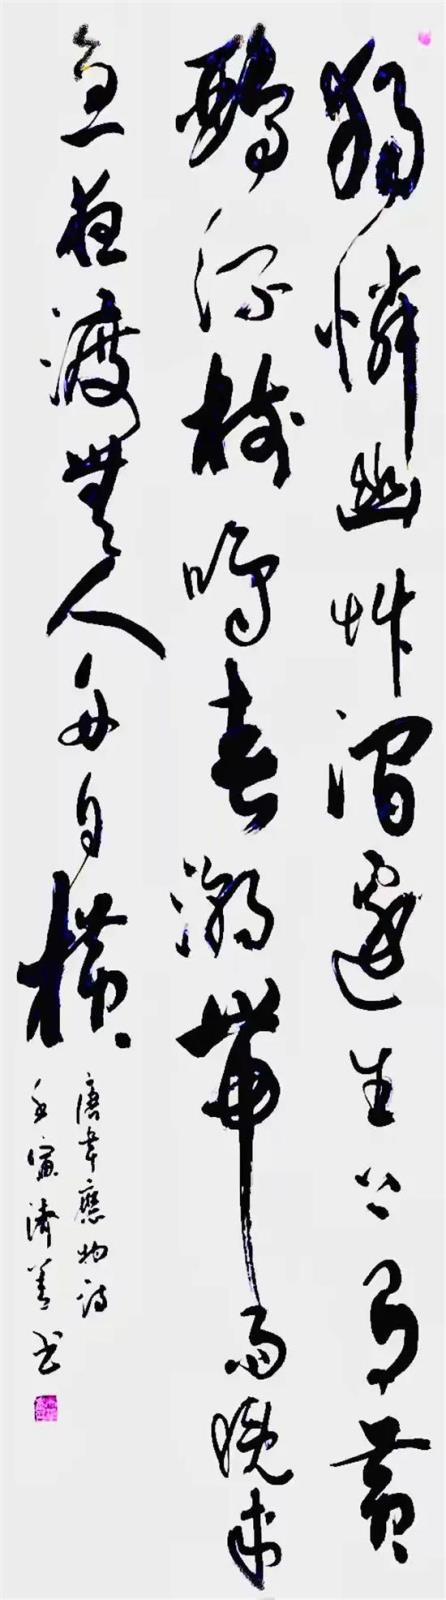 獨憐幽草澗邊生上有黃
鸝深樹鳴春潮帶雨晚來
急野渡無人舟自橫
唐韋應物詩
壬寅濟善书